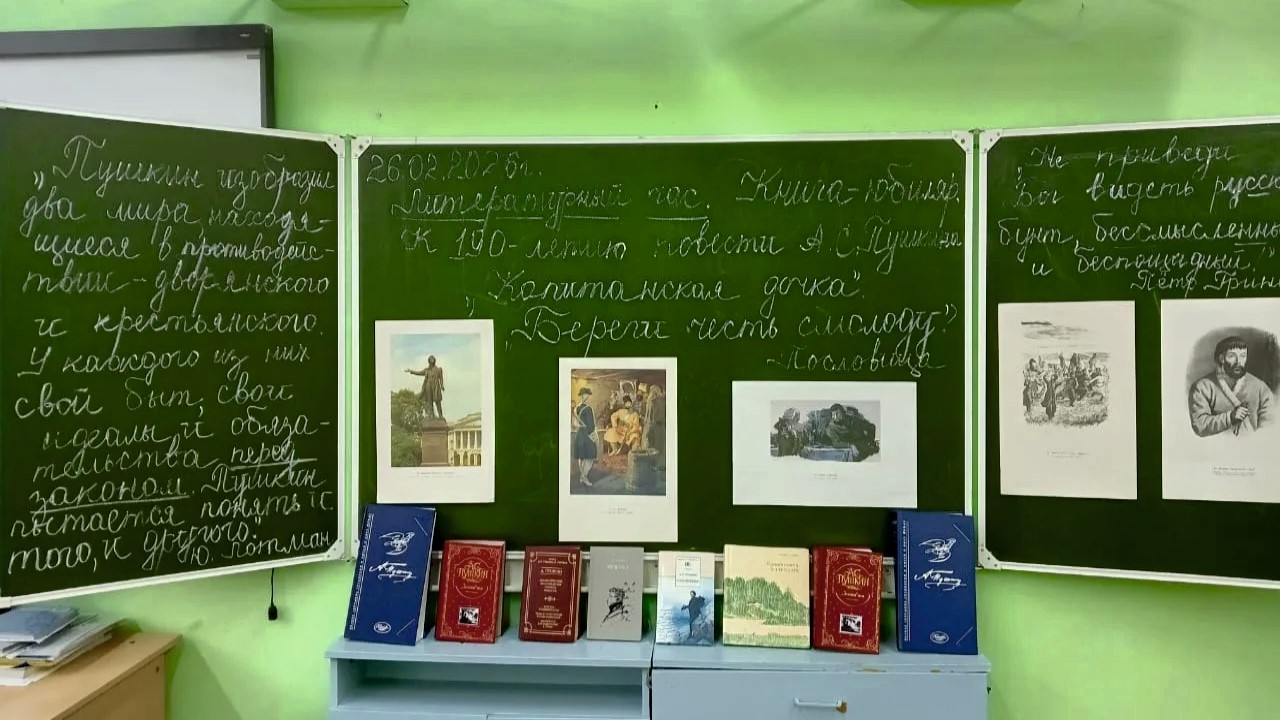 „Пушкин изобразил
два мира, находя-
щиеся в противодейс-
твии – дворянского
и крестьянского.
У каждого из них
свой быт, свои
идеалы и обяза-
тельства перед
законом. Пушкин
пытается понять и
того, и другого."
Ю. Лотман
26.02.2026г.
Литературный час. Книга-юбиляр.
К 190-летию повести А.С.Пушкина
„Капитанская дочка".
„Береги честь смолоду"
-Пословица
„Не приведи
Бог видеть русск
бунт, бессмысленны
и беспощадный!"
Пётр Грин
А.С.
ПУШКИН
А.С.
ПУШКИН